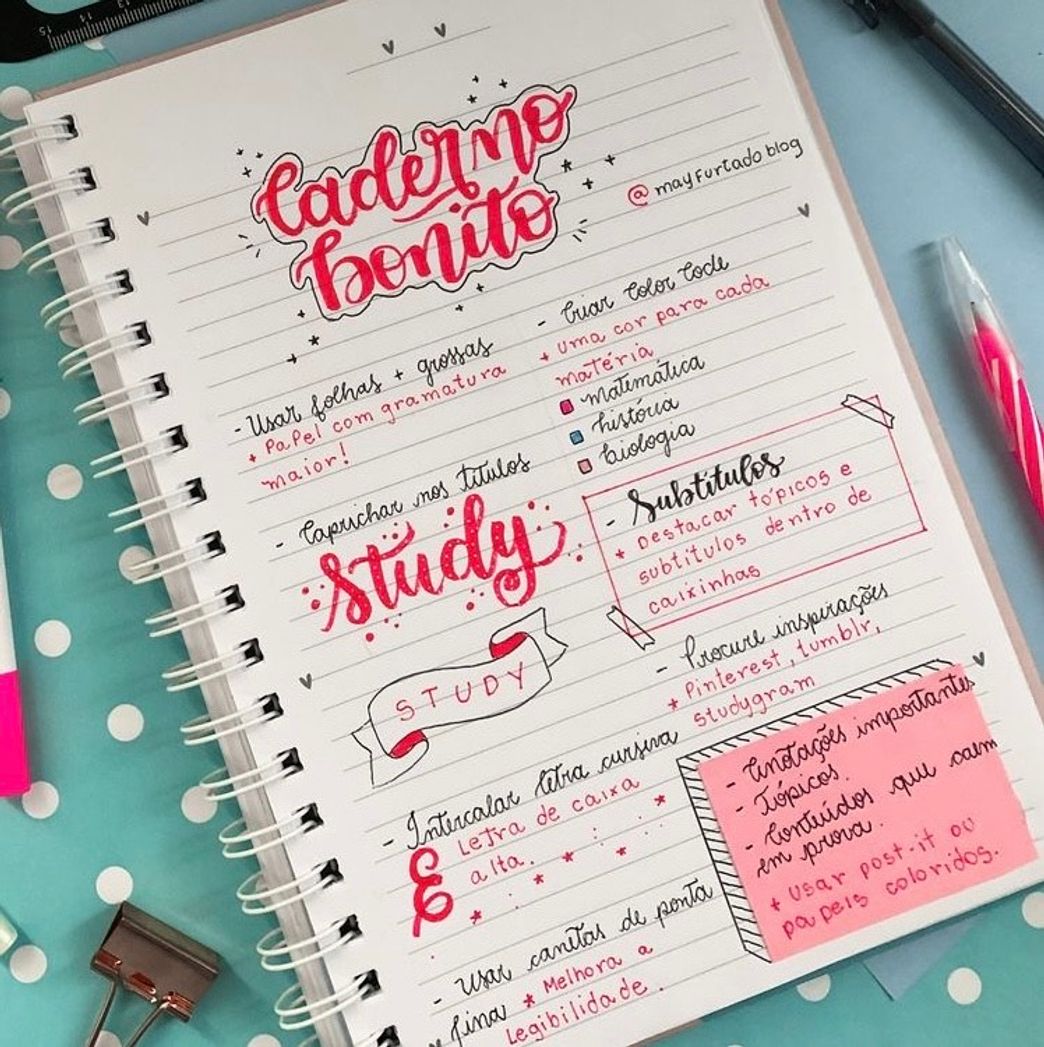 Caderno
bonito
@mayfurtado blog
- Usar folhas + grossas
+ Papel com gramatura
maior!
- Caprichar nos títulos
Study
STUDY
- Intercalar letra cursiva
E Letra de caixa
alta.
- Usar canetas de ponta
fina * Melhora a
Legibilidade.
- Criar Color Code
+ uma cor para cada
matéria
matemática
história
biologia
- Subtítulos
* Destacar tópicos e
subtítulos dentro de
caixinhas
- Procure inspirações
* Pinterest, tumblr,
studygram
- Anotações importantes
- Tópicos.
- Conteúdos que caem
em prova.
+ usar post-it ou
papeis coloridos.
15 14 13